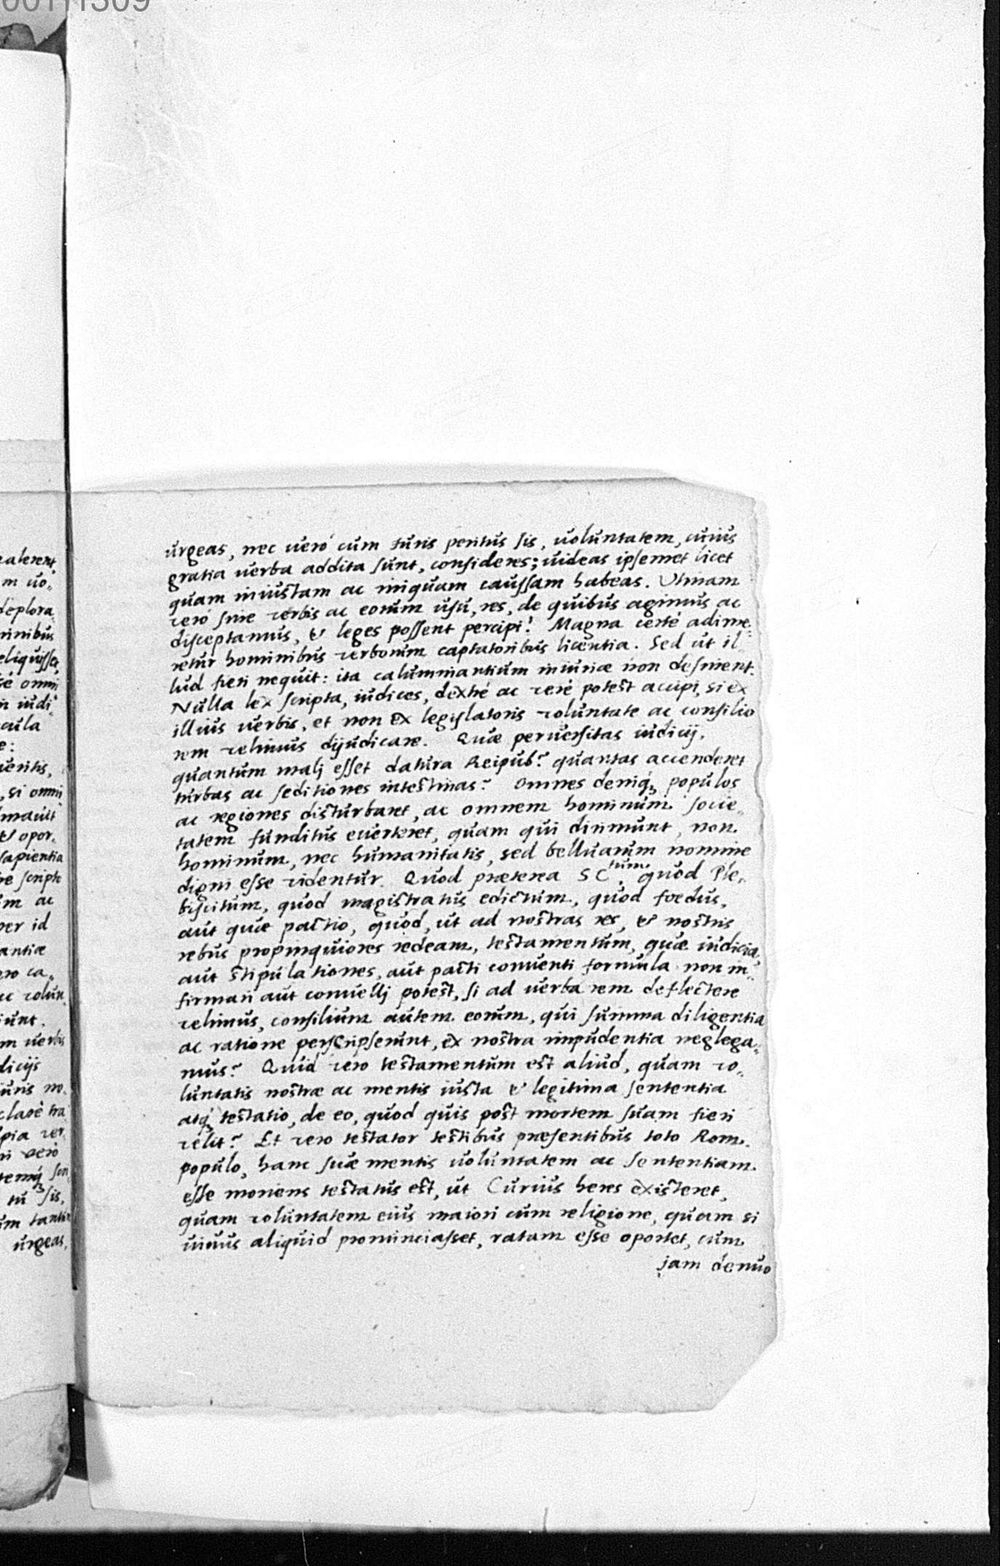 urgeas, nec uero cum iuris peritus sis, uoluntatem, cuius
gratia uerba addita sunt, consideres; uideas ipsemet licet
quam iniustam ac iniquam caussam habeas. Utinam
vero sine verbis ac eorum usu, res, de quibus agimus ac
disceptamus, & leges possent percipi! Magna certe adime-
retur hominibus verborum captatoribus licentia. Sed ut il-
lud fieri nequit: ita calumniantium iniuriæ non desinent.
Nulla lex scripta, iudices, dextré ac veré potest accipi, si ex
illius uerbis, et non ex legislatoris voluntate ac consilio
rem velimus dijudicare. Quæ peruersitas iudicij,
quantum malj esset datura Reipub? quantas accenderet
turbas ac seditiones intestinas? Omnes deniq; populos
ac regiones disturbaret, ac omnem hominum socie-
tatem funditus euerteret, quam qui dirimunt, non
hominum, nec humanitatis, sed belluarum nomine
digni esse videntur. Quod præterea SCtum, quod Ple-
biscitum, quod magistratus edictum, quod foedus,
aut quæ pactio, quod, ut ad nostras res, & nostris
rebus propinquiores redeam, testamentum, quæ iudicia,
aut stipulationes, aut pacti conuenti formula non in-
firmari aut conuellj potest, si ad uerba rem deflectere
velimus, consilium autem eorum, qui summa diligentia
ac ratione perscripserunt, ex nostra imprudentia neglega-
mus? Quid vero testamentum est aliud, quam vo-
luntatis nostræ ac mentis iusta & legitima sententia
atq; testatio, de eo, quod quis post mortem suam fieri
velit? Et vero testator testibus præsentibus toto Rom.
populo, hanc suæ mentis uoluntatem ac sententiam
esse moriens testatus est, ut Curius heres existeret,
quam voluntatem eius maiori cum religione, quam si
uiuus aliquid pronunciasset, ratam esse oportet, cum
jam denuo